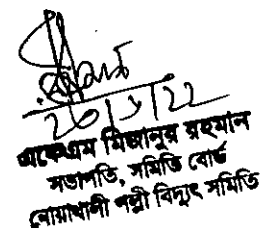 ২৬/১/২২
একেএম মিজানুর রহমান
সভাপতি, সমিতি বোর্ড
নোয়াখালী পল্লী বিদ্যুৎ সমিতি